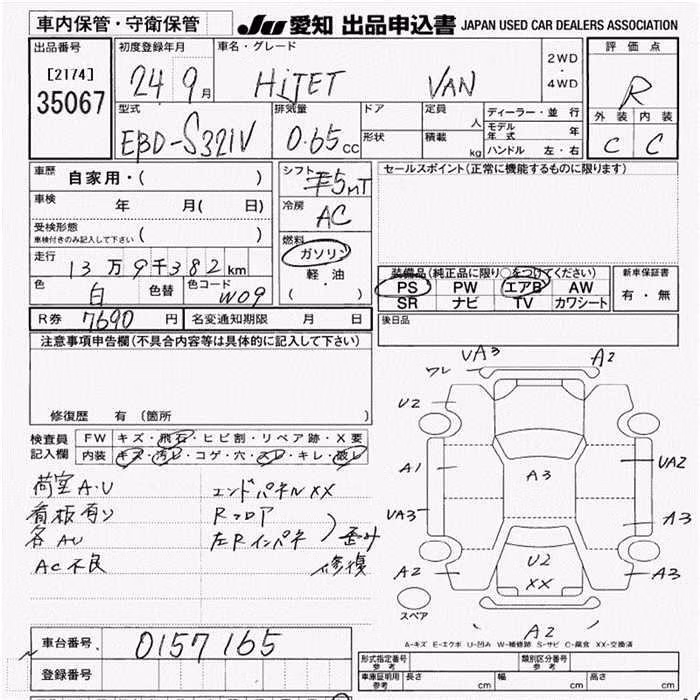 車内保管・守衛保管
JU 愛知 出品申込書 JAPAN USED CAR DEALERS ASSOCIATION
出品番号
[2174]
35067
初度登録年月
24 9月
車名・グレード
HiJET VAN
2WD
・
4WD
評価点
R
外装 内装
C C
型式
EBD-S321V
排気量
0.65cc
ドア
形状
定員
人
積載
kg
ディーラー・並行
モデル年式 年
ハンドル 左・右
車歴 自家用・( )
車検 年 月( 日)
受検形態
車検付きのみ記入して下さい ( )
走行
13万9千382km
色 白 色替 色コード W09
シフト
5MT
冷房
AC
燃料
ガソリン
・
軽・油
( )
セールスポイント(正常に機能するものに限ります)
装備品(純正品に限り○をつけてください)
PS PW エアB AW
SR ナビ TV カワシート
新車保証書
有・無
後日品
R券 7690 円
名変通知期限 月 日
注意事項申告欄(不具合内容等は具体的に記入して下さい)
修復歴 有(箇所 )
検査員
記入欄
FW キズ・飛石・ヒビ割・リペア跡・X要
内装 キズ・汚レ・コゲ・穴・スレ・キレ・破レ
荷室A.U エンドパネルXX
看板有り Rフロア
各AU 左Rインパネ 歪み
AC不良 修復
VA3 A2
ワレ
U2
A1 A3 UA2
VA3 A3
A2 U2 A3
XX
スペア
A2
A-キズ E-エクボ U-凹み W-補修跡 S-サビ C-腐食 XX-交換済
車台番号 0157165
登録番号
形式指定番号
参考
類別区分番号
参考
車庫証明用
参考
長さ cm 幅 cm 高さ cm